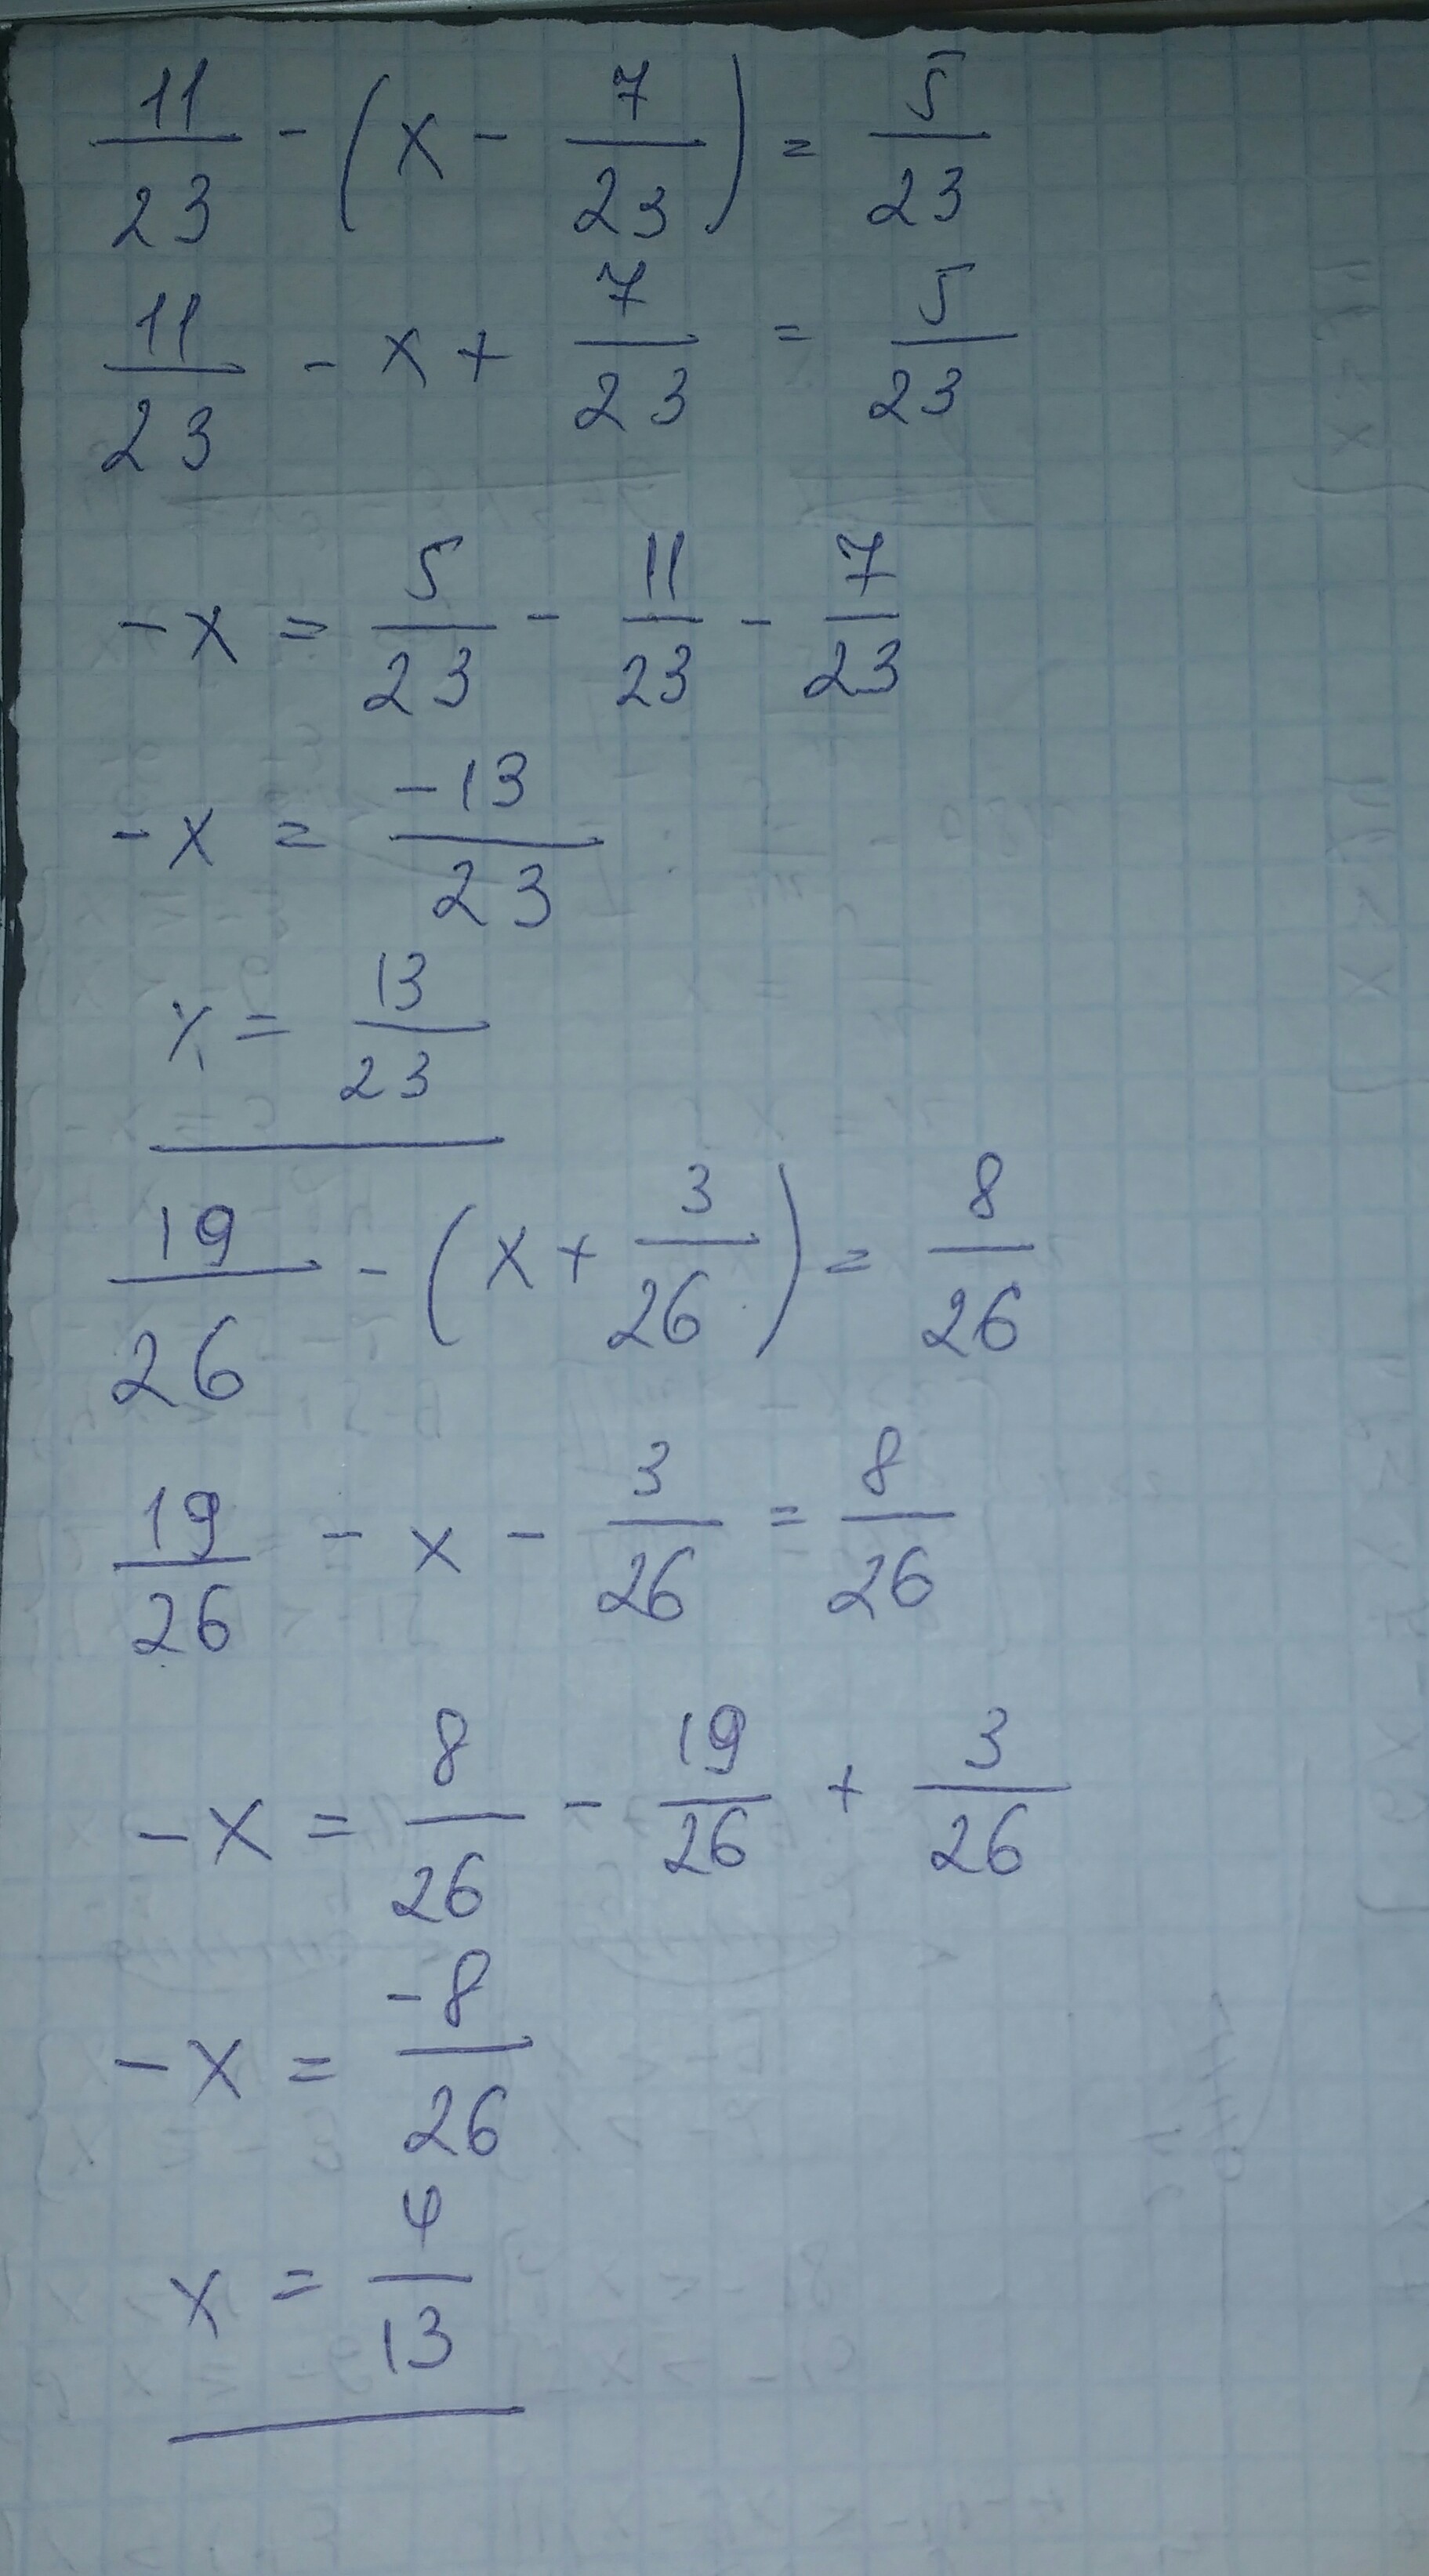 11/23 - (x - 7/23) = 5/23
11/23 - x + 7/23 = 5/23
-x = 5/23 - 11/23 - 7/23
-x = -13/23
x = 13/23
19/26 - (x + 3/26) = 8/26
19/26 - x - 3/26 = 8/26
-x = 8/26 - 19/26 + 3/26
-x = -8/26
x = 4/13